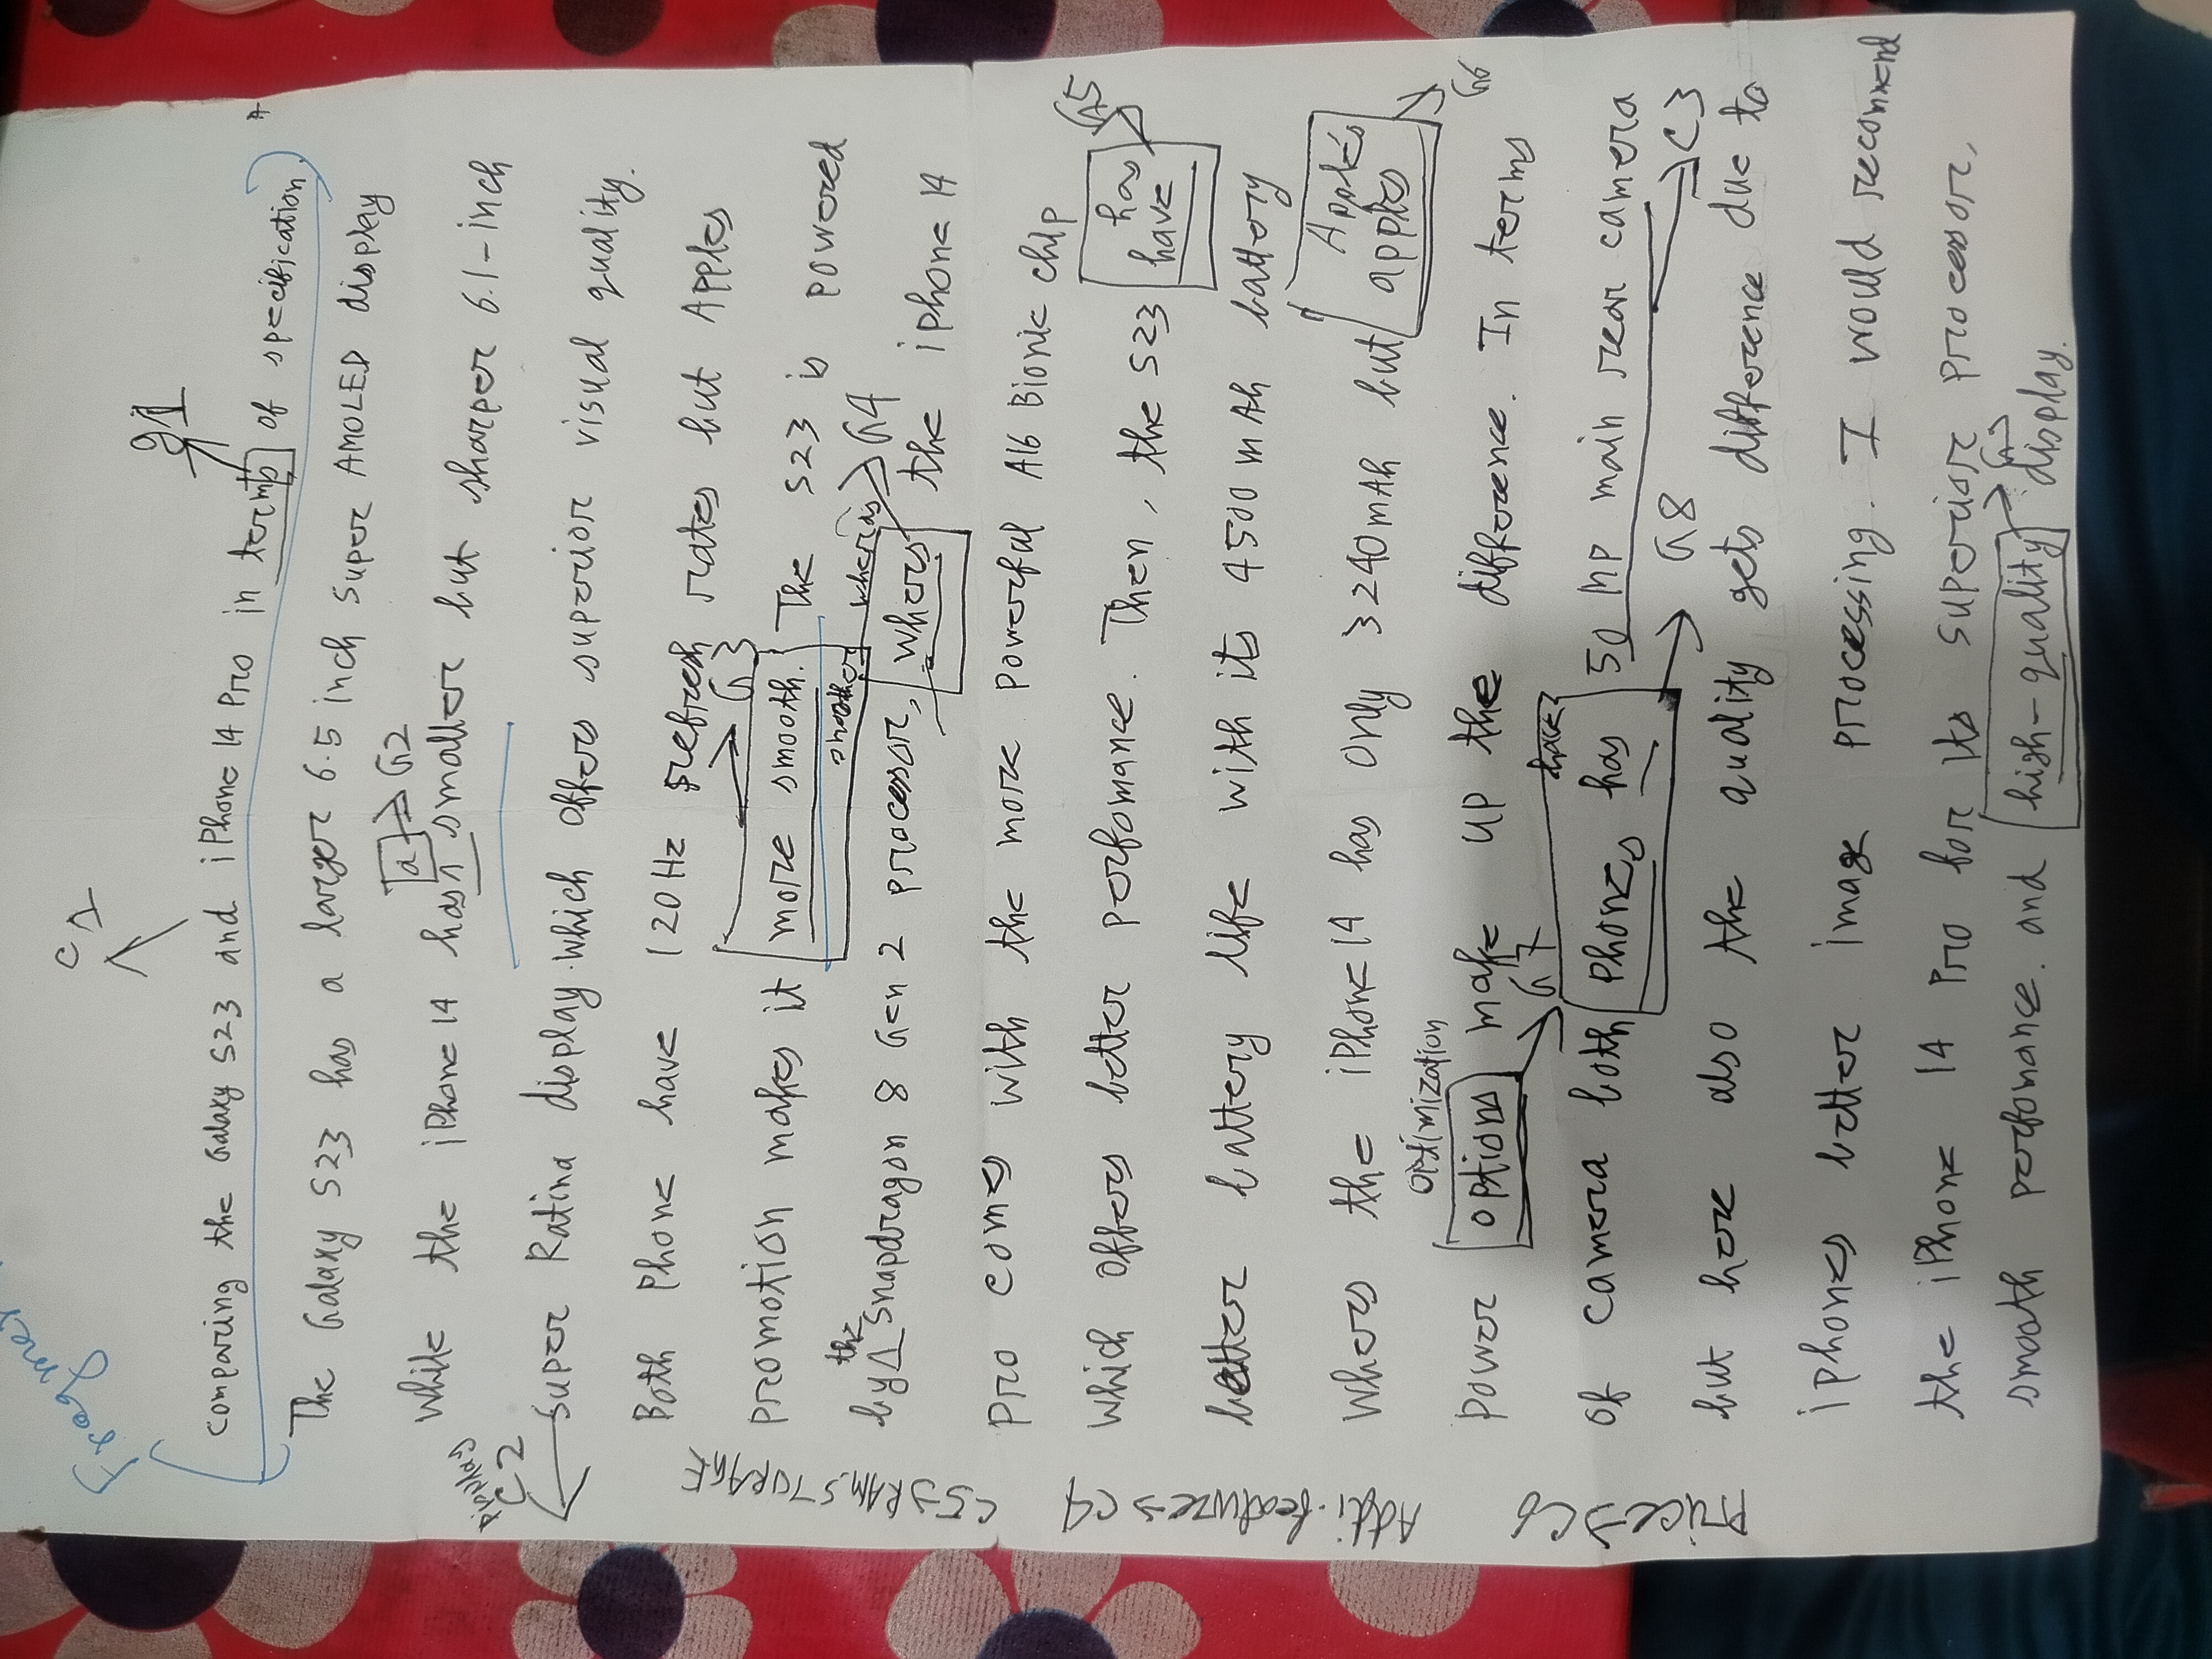 Fragmen
C1
g1
Comparing the Galaxy S23 and iPhone 14 Pro in terms of specification.
The Galaxy S23 has a larger 6.5 inch Super AMOLED display
a → G2
While the iPhone 14 has smaller but sharper 6.1-inch
Display
C2
Super Ratina display. which offers superior visual quality.
Both Phone have 120Hz refresh rates but Apples
G3
promotion makes it more smooth. The S23 is powered
the smoother whereas G4
by Snapdragon 8 Gen 2 processor, whers the iphone 14
Pro comes with the more powerful A16 Bionic chip
G5
has
Which offers better perfomance. Then, the S23 have
better battery life with its 4500 mAh battery
Apple's
Whers the iPhone 14 has only 3240mAh but apples
G6
optimization
Power options make up the difference. In terms
G7
have
of camera both phones has 50 MP main rear camera
G8 C3
but here also the quality gets difference due to
iphones better image processing. I would recommend
the iPhone 14 Pro for its superior processor,
smooth perfomance. and high-quality display.
C5→RAM, STORAGE
Addi. features→C4
Price→C6